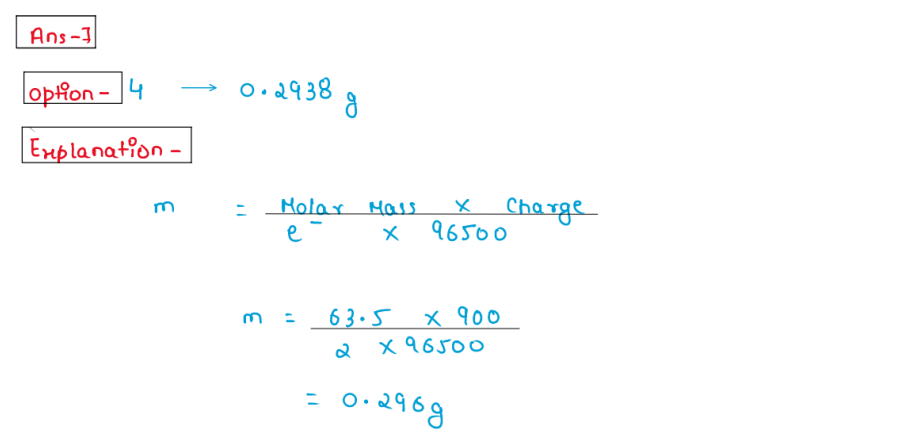 Ans-I
option- 4 → 0.2938 g
Explanation-
m = Molar Mass x Charge
e⁻ x 96500
m = 63.5 x 900
2 x 96500
= 0.296g